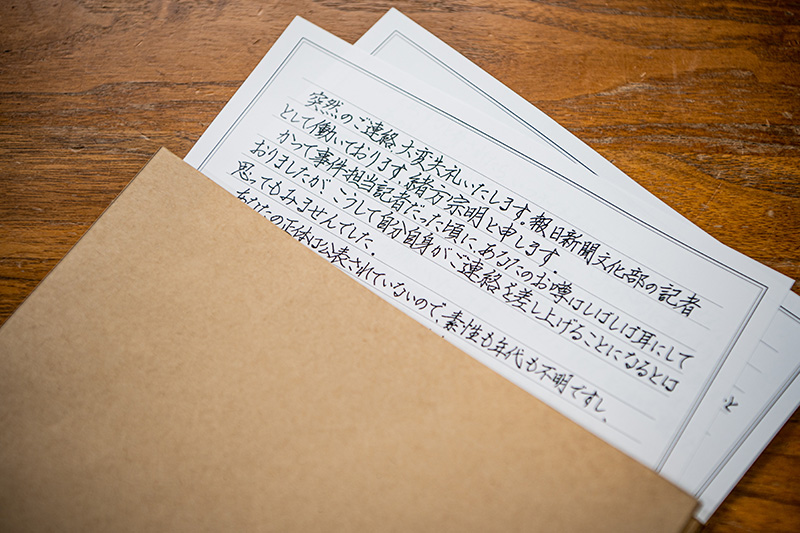 突然のご連絡大変失礼いたします。報日新聞文化部の記者
として働いております、緒方宗明と申します。
かつて事件担当記者だった頃に、あなたのお噂はしばしば耳にして
おりましたが、こうして自分自身がご連絡を差し上げることになるとは
思ってもみませんでした。
あなたの正体は公表されていないので、素性も年代も不明ですし、
と